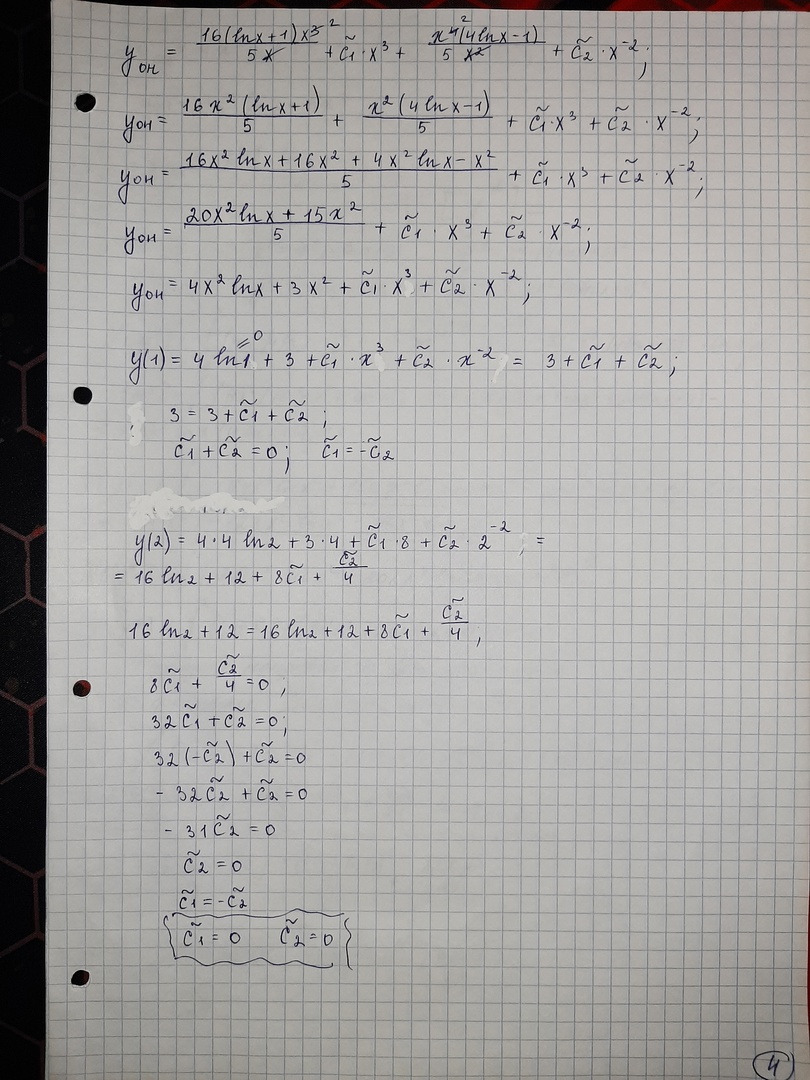 y_он = 16(ln x+1)x̶³̶ ² / 5x̶ + C̃₁·x³ + x⁴̶ ²(4ln x−1) / 5x̶²̶ + C̃₂·x⁻²;
y_он = 16x²(ln x+1) / 5 + x²(4ln x−1) / 5 + C̃₁·x³ + C̃₂·x⁻²;
y_он = 16x² ln x + 16x² + 4x² ln x − x² / 5 + C̃₁·x³ + C̃₂·x⁻²;
y_он = 20x² ln x + 15x² / 5 + C̃₁·x³ + C̃₂·x⁻²;
y_он = 4x² ln x + 3x² + C̃₁·x³ + C̃₂·x⁻²;
y(1) = 4 ln1 =0 + 3 + C̃₁·x³ + C̃₂·x⁻² = 3 + C̃₁ + C̃₂;
3 = 3 + C̃₁ + C̃₂;
C̃₁ + C̃₂ = 0; C̃₁ = −C̃₂
y(2) = 4·4 ln2 + 3·4 + C̃₁·8 + C̃₂·2⁻²; =
= 16 ln2 + 12 + 8C̃₁ + C̃₂/4
16 ln2 + 12 = 16 ln2 + 12 + 8C̃₁ + C̃₂/4;
8C̃₁ + C̃₂/4 = 0;
32C̃₁ + C̃₂ = 0;
32(−C̃₂) + C̃₂ = 0
− 32C̃₂ + C̃₂ = 0
− 31C̃₂ = 0
C̃₂ = 0
C̃₁ = −C̃₂
C̃₁ = 0 C̃₂ = 0
4